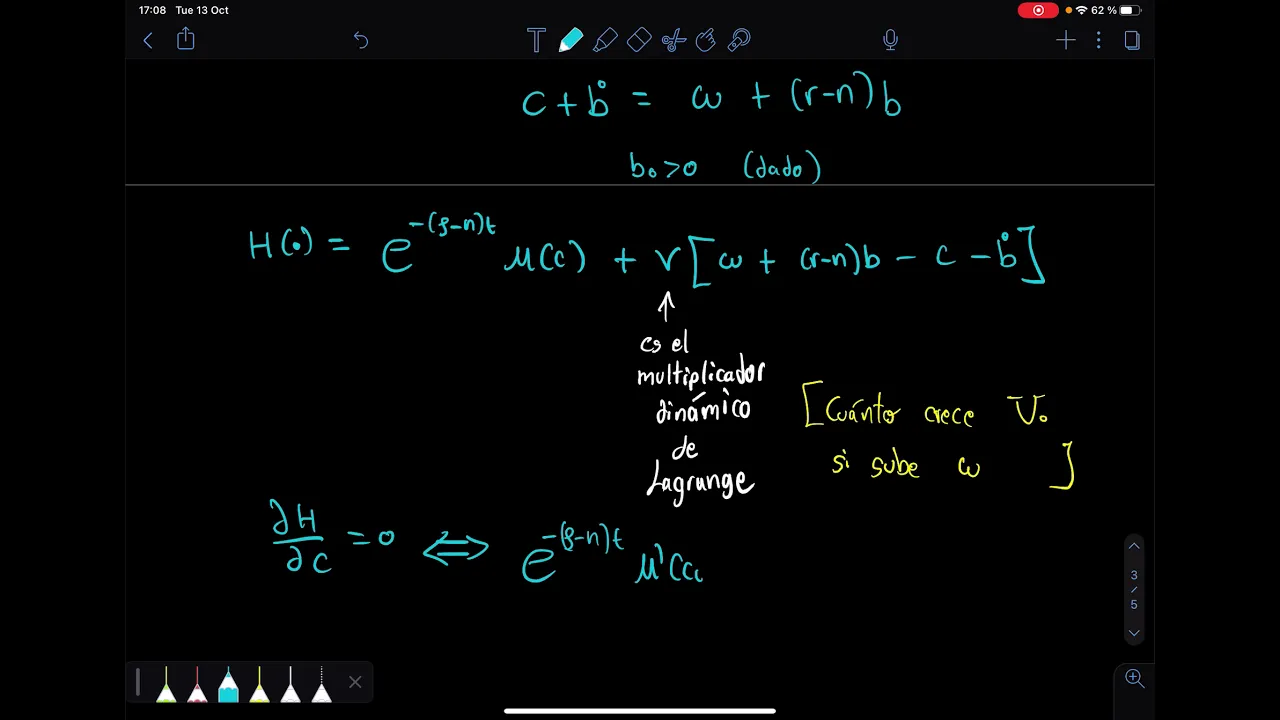 17:08 Tue 13 Oct 62 %
c + ḃ = ω + (r-n)b
b₀ > 0 (dado)
H(•) = e^{-(ρ-n)t} μ(c) + ν[ω + (r-n)b - c - ḃ]
↑
es el
multiplicador
dinámico
de
Lagrange
[Cuánto crece U₀
si sube ω ]
∂H/∂c = 0 ⟺ e^{-(ρ-n)t} μ'(c
3
/
5